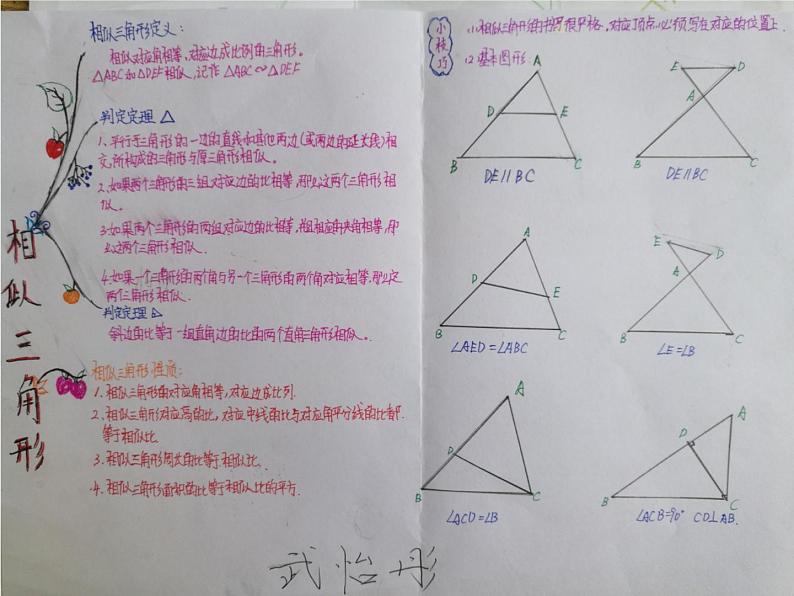 相似三角形
相似三角形定义:
相似对应角相等,对应边成比例的三角形。
△ABC和△DEF相似,记作 △ABC∽△DEF
判定定理 △
1、平行于三角形的一边的直线和其他两边(或两边的延长线)相
交,所构成的三角形与原三角形相似。
2.如果两个三角形的三组对应边的比相等,那么这两个三角形相
似。
3.如果两个三角形的两组对应边的比相等,相应的夹角相等,那
么这两个三角形相似.
4.如果一个三角形的两个角与另一个三角形的两个角对应相等,那么这
两个三角形相似.
判定定理 △
斜边的比等于一组直角边的比的两个直角三角形相似。
相似三角形性质:
1.相似三角形的对应角相等,对应边成比列.
2.相似三角形对应高的比,对应中线的比与对应角平分线的比都
等于相似比
3.相似三角形周长的比等于相似比.
4.相似三角形面积的比等于相似比的平方.
小技巧
(1)相似三角形的书写很严格,对应顶点必须写在对应的位置上.
(2)基本图形
A
D
E
B
C
DE∥BC
E
D
A
B
C
DE∥BC
A
D
E
B
C
∠AED=∠ABC
E
D
A
B
C
∠E=∠B
A
D
B
C
∠ACD=∠B
A
D
B
C
∠ACB=90° CD⊥AB.
武怡彤